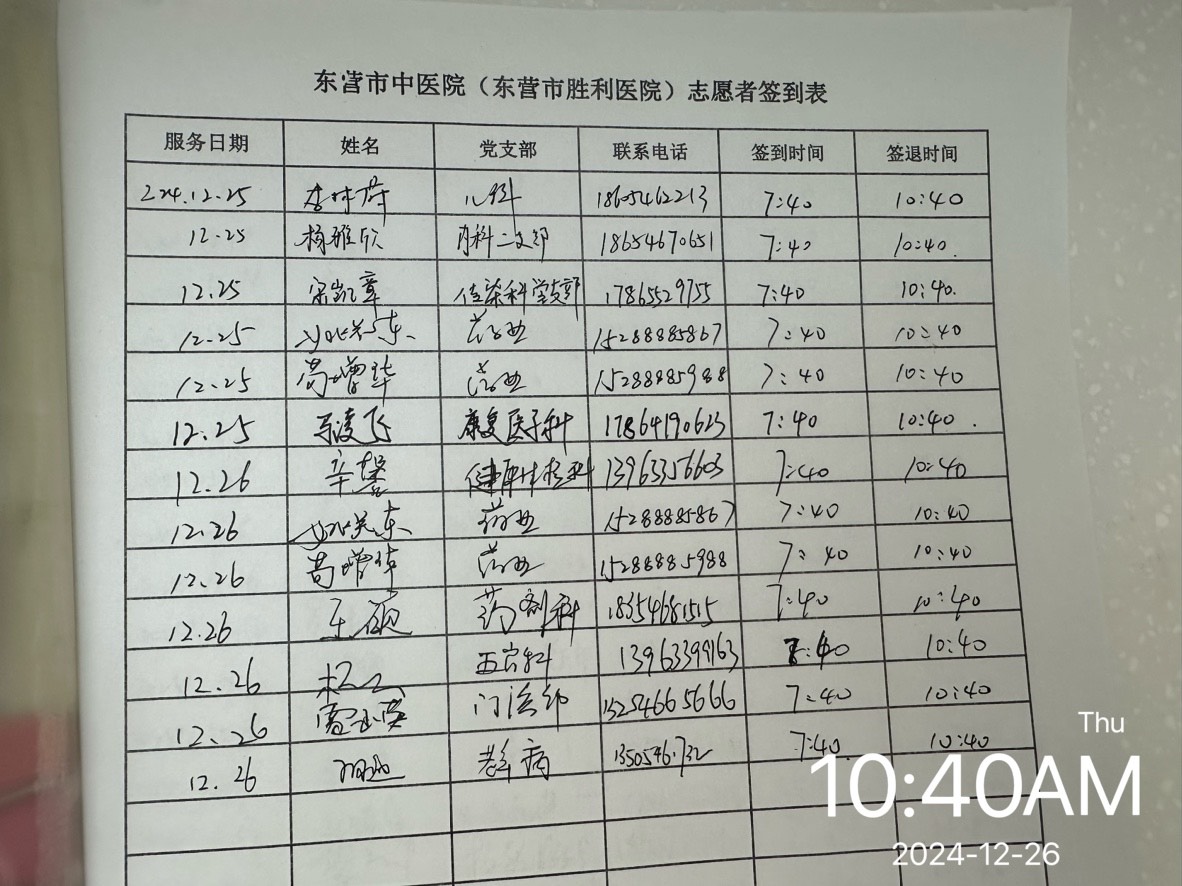 东营市中医院（东营市胜利医院）志愿者签到表
服务日期 姓名 党支部 联系电话 签到时间 签退时间
12.25 儿科 18605462213 7:40 10:40
12.25 杨雅欣 内科二支部 18654670651 7:40 10:40.
12.25 宋凯章 传染科党支部 17865529755 7:40 10:40.
12.25 15288885867 7:40 10:40
12.25 葛曾华 15288885988 7:40 10:40
12.25 马凌飞 康复医学科 17864190623 7:40 10:40.
12.26 辛馨 13963356603 7:40 10:40
12.26 15288885867 7:40 10:40
12.26 葛曾华 15288885988 7:40 10:40
12.26 药剂科 18354681515 7:40 10:40
12.26 五官科 13963399163 7:40 10:40
12.26 门诊部 15254665666 7:40 10:40
12.26 老年病 7:40 10:40
Thu
10:40AM
2024-12-26